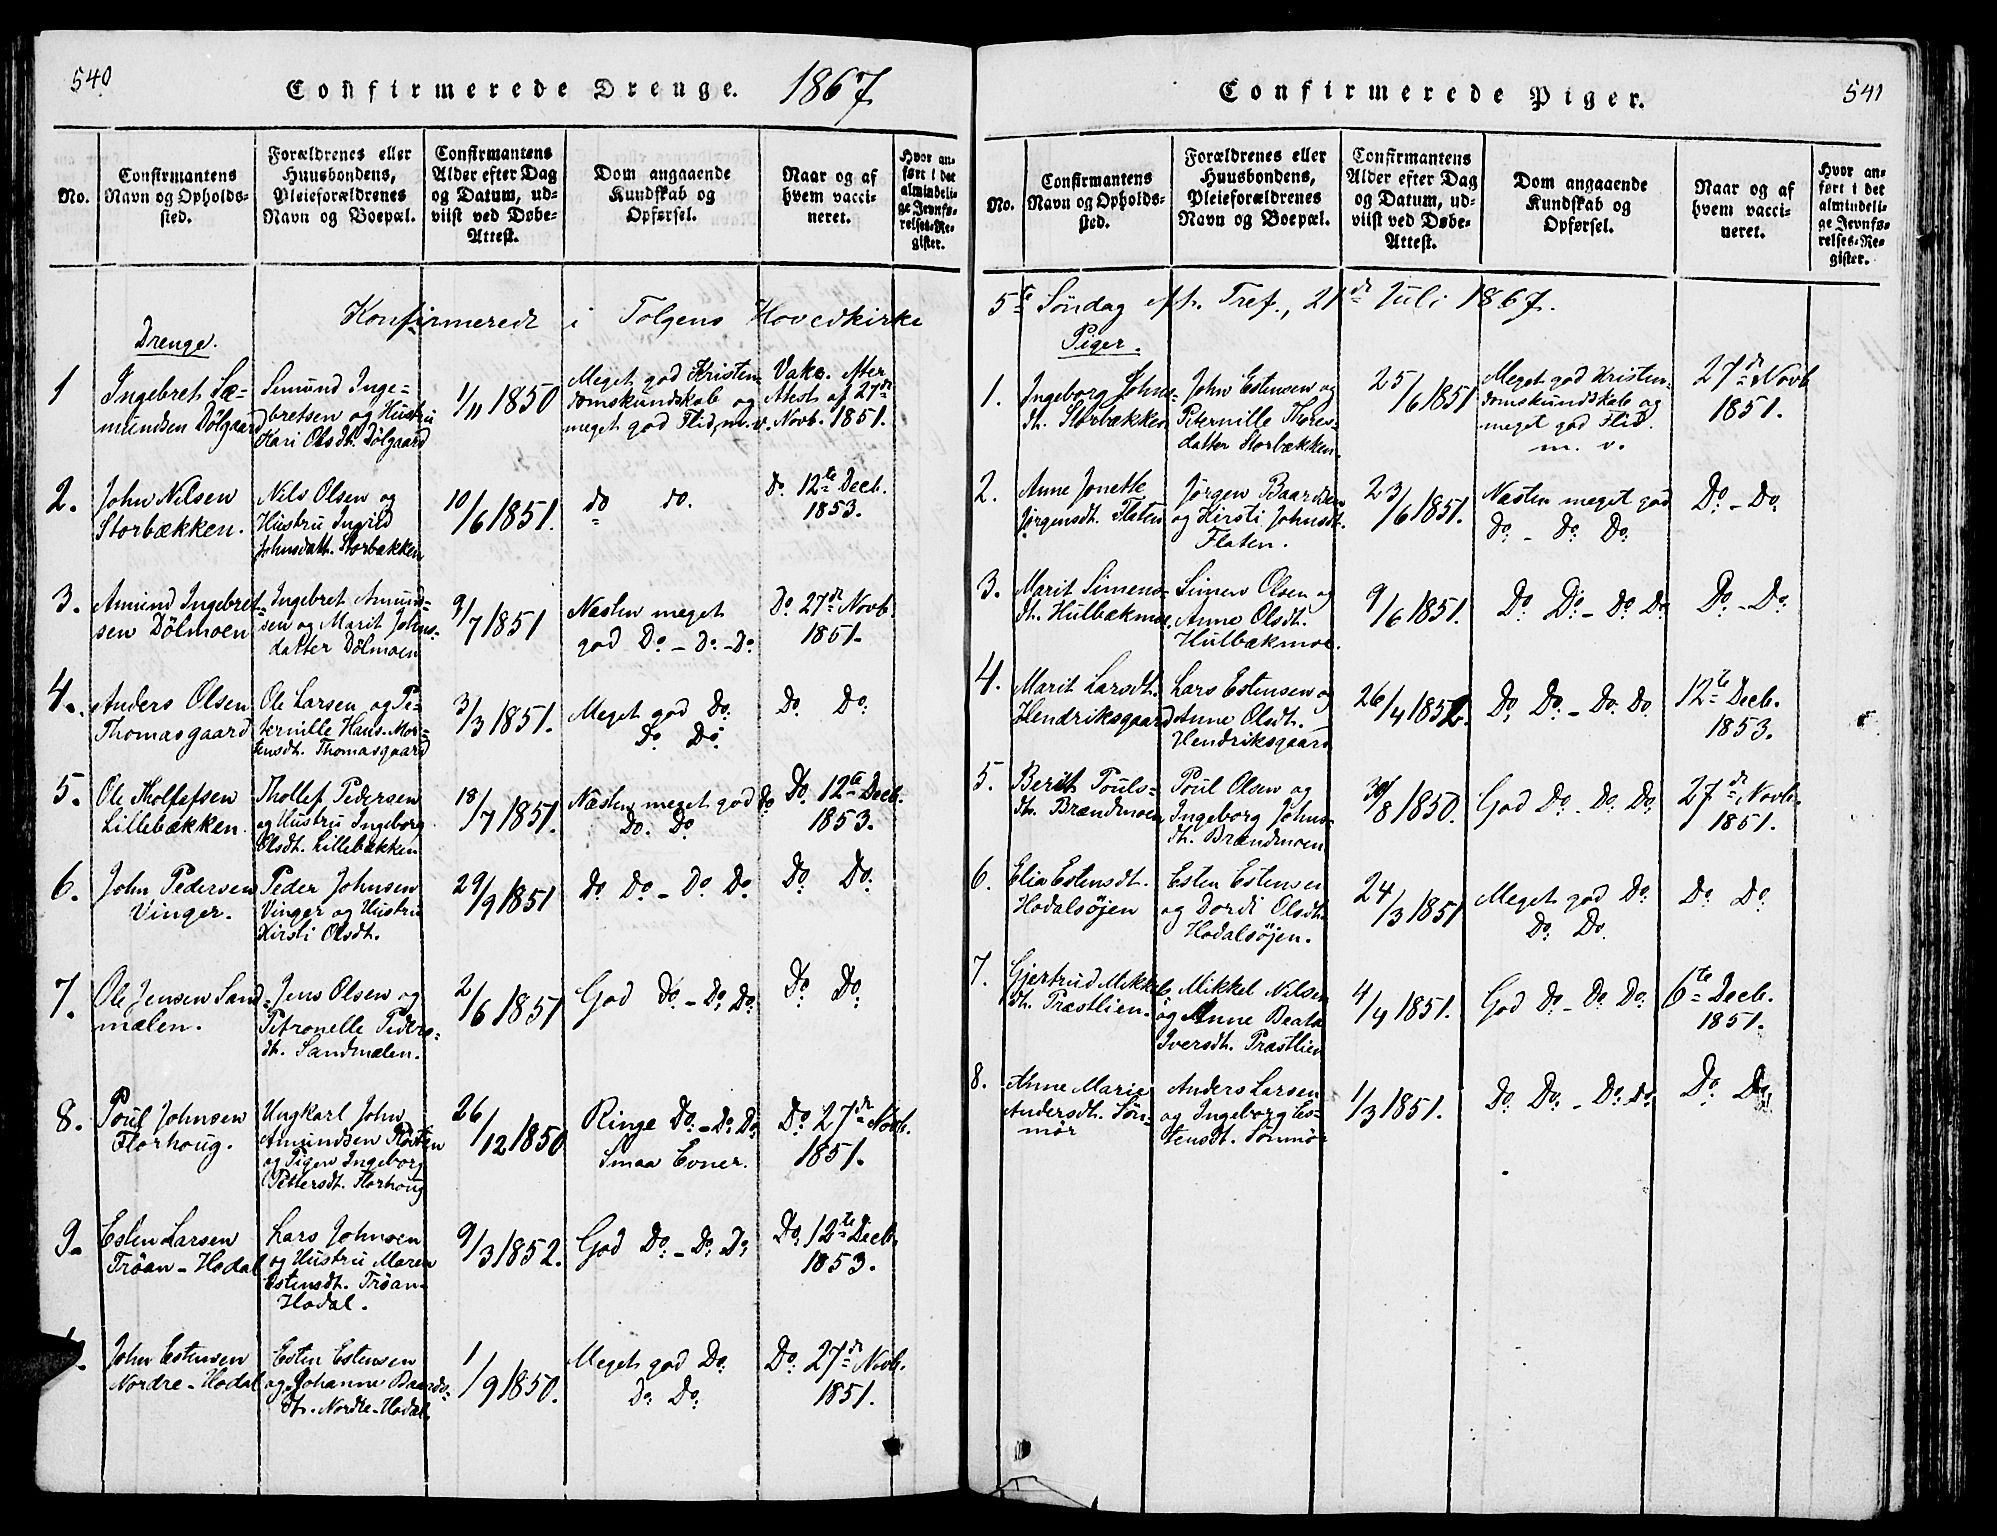 540
Confirmerede Drenge. 1867
No.
Confirmantens
Navn og Opholds-
sted.
Forældrenes eller
Huusbondens,
Pleieforældrenes
Navn og Boepæl.
Confirmantens
Alder efter Dag
og Datum, ud-
viist ved Døbe-
Attest.
Dom angaaende
Kundskab og
Opførsel.
Naar og af
hvem vacci-
neret.
Hvor an-
ført i det
almindeli-
ge Jevnfø-
relses-Re-
gister.
Konfirmerede i Tolgens Hovedkirke
Drenge.
1
Ingebret Sæ-
mundsen Dølgaard
Semund Inge-
bretsen og Hustru
Kari Olsdt. Dølgaard
1/11 1850
Meget god Kristen-
domskundskab og
meget god Flid, m. v.
Vakc. Atter
Attest af 27de
Novb. 1851.
2.
John Nilsen
Storbækken.
Nils Olsen og
Hustru Ingrid
Johnsdatt. Storbækken
10/6 1851.
do do.
do. 12te Decb.
1853.
3.
Amund Ingebret-
sen Dølmoen
Ingebret Amund-
sen og Marit Johns-
datter Dølmoen
9/7 1851
Næsten meget
god Do - Do - Do
Do. 27de Novb.
1851.
4.
Anders Olsen
Thomasgaard
Ole Larsen og Pe-
ternille Hans. Mor-
tensdt. Thomasgaard
3/3 1851.
Meget god Do.
Do. Do.
Do. Do.
5.
Ole Tholfefsen
Lillebækken.
Thollef Pedersen
og Hustru Ingeborg
Olsdt. Lillebækken
18/7 1851.
Næsten meget god Do
Do. Do
Do. 12te Decb.
1853.
6.
John Pedersen
Vinger.
Peder Johnsen
Vinger og Hustru
Kirsti Olsdt.
29/9 1851
Do Do - Do Do.
Do. Do.
7.
Ole Jensen Sand-
mælen.
Jens Olsen og
Petronelle Peders-
dt. Sandmælen.
2/6 1851
God Do - Do Do
Do Do.
8.
Poul Johnsen
Florhoug.
Ungkarl John
Amundsen
og Pigen Ingeborg
Pettersdt. Florhoug
26/12 1850
Ringe Do. - Do Do
Smaa Evner.
Do. 27de Novb.
1851.
9.
Esten Larsen
Trøan - Hodal
Lars Johnsen
og Hustru Maren
Estensdt. Trøan-
Hodal.
9/3 1852.
God Do. - Do. Do
Do. 12te Decb.
1853.
John Estensen
Nordre - Hodal
Esten Estensen
og Johanne Baards-
dt. Nordre-Hodal.
1/9 1850.
Meget god Do.
Do Do.
Do. 27de Novb.
1851.
541
Confirmerede Piger.
No.
Confirmantens
Navn og Opholds-
sted.
Forældrenes eller
Huusbondens,
Pleieforældrenes
Navn og Boepæl.
Confirmantens
Alder efter Dag
og Datum, ud-
viist ved Døbe-
Attest.
Dom angaaende
Kundskab og
Opførsel.
Naar og af
hvem vacci-
neret.
Hvor an-
ført i det
almindeli-
ge Jevnfø-
relses-Re-
gister.
5te Søndag eft. Tref., 21de Juli 1867.
Piger.
1.
Ingeborg Johns-
dt. Storbækken
John Estensen og
Peternille Thores-
datter Storbækken.
25/6 1851
Meget god Kristen-
domskundskab og
meget god Flid.
m. v.
27de Novb
1851.
2.
Anne Jonette
Jørgensdt. Flaten
Jørgen Baardsen
og Kirsti Johnsdt.
Flaten.
23/6 1851.
Næsten meget god
Do. - Do. Do.
Do. - Do.
3.
Marit Simens-
dt. Hulbækmoe.
Simen Olsen og
Anne Olsdt.
Hulbækmoe.
9/6 1851.
Do. Do. - Do Do.
Do. - Do.
4.
Marit Larsdt.
Hendriksgaard
Lars Estensen og
Anne Olsdt.
Hendriksgaard
26/4 1852.
Do. Do. - Do. Do.
12te Decb.
1853.
5.
Berit Pouls-
dt. Brændmoen
Poul Olsen og
Ingeborg Johns-
dt. Brændmoen
30/8 1850.
God Do. - Do. Do.
27de Novb.
1851.
6.
Elia Estensdt.
Hodalsøjen
Esten Estensen
og Dordi Olsdt.
Hodalsøjen.
24/3 1851
Meget god Do.
Do. Do.
Do. Do.
7.
Gjertrud Mikkels-
dt. Træstlien.
Mikkel Nilsen
og Anne Beata
Iversdt. Træstlien
4/4 1851.
God Do. - Do. Do.
6te Decb.
1851.
8.
Anne Marie
Andersdt. Søn-
mør
Anders Larsen
og Ingeborg Es-
tensdt. Sønmør
1/3 1851.
Do. Do. - Do. Do.
Do. Do.